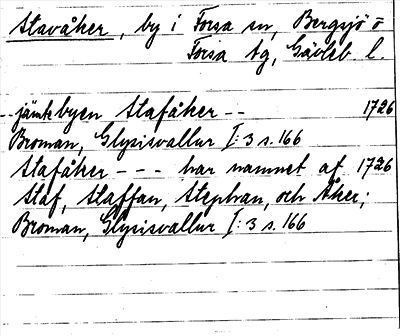 Stavåker, by i Forsa sn, Bergsjö o
Forsa tg, Gävleb. l.
-- jämte byen Stafåker -- 1726
Broman, Glysisvallur I:3 s. 166
Stafåker --- har namnet af 1726
Staf, Staffan, Stephan, och Åker;
Broman, Glysisvallur I:3 s. 166